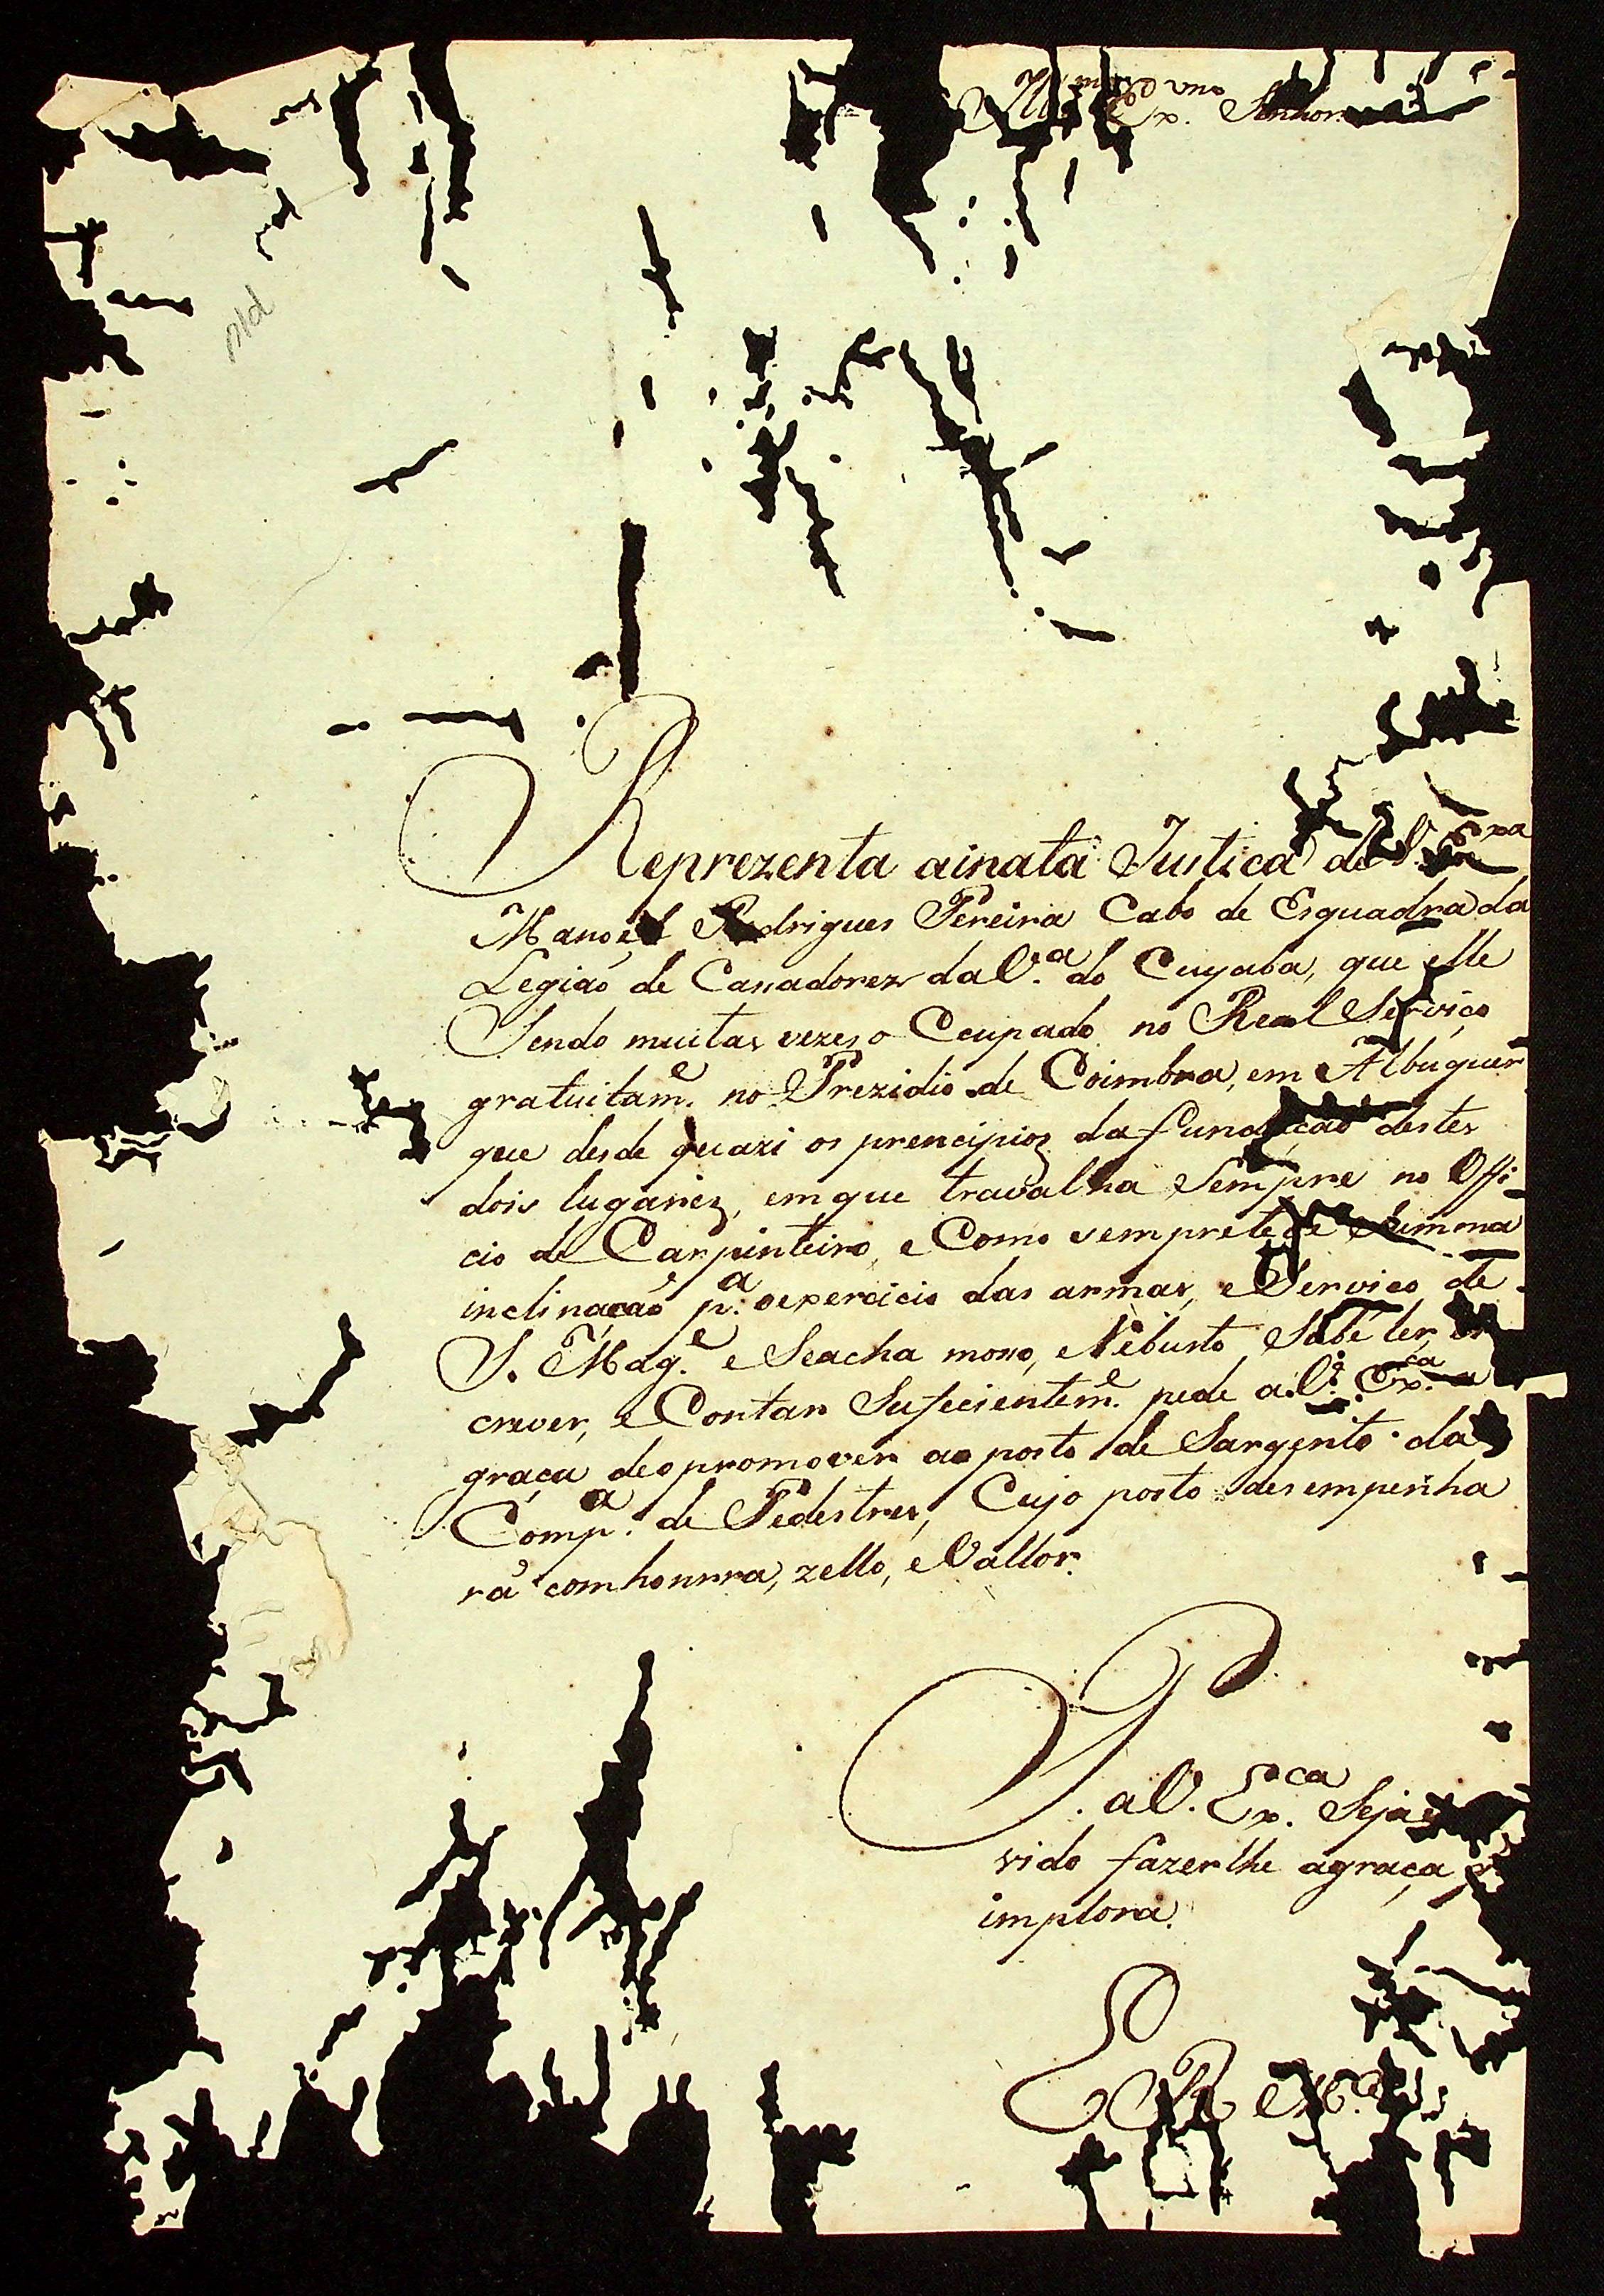 Ill.mo e Ex.mo Senhor
Reprezenta ainata Justiça de V. Exa
Manoel Rodrigues Pereira Cabo de Esquadra da
Legiaõ de Casadorez da V.a do Cuyaba, que elle
Sendo muitas vezes o Ccupado no Real Serviço
gratuitam.e no Prezidio de Coimbra, em Albuquer
que desde quazi os prencipioz da fundaçaõ destes
dois lugarez, em que travalha Sempre no Offi-
cio de Carpinteiro, e Como sempre teve summa
inclinaçaõ p.a o exercicio das armas, e Serviço de
S. Mag.e e Seacha moso, e Rebusto, Sabe ler, es
crever, e Contar Suficientem.e pede a V. Ex.ca a
graça de o promover ao posto de Sargento da
Comp.a de Pedestres, Cujo posto desempenha
rá com honrra, zello, e Vallor.
P. a V. Ex.ca Seja ser
vido fazerlhe a graça q.
implora.
E R M.ce